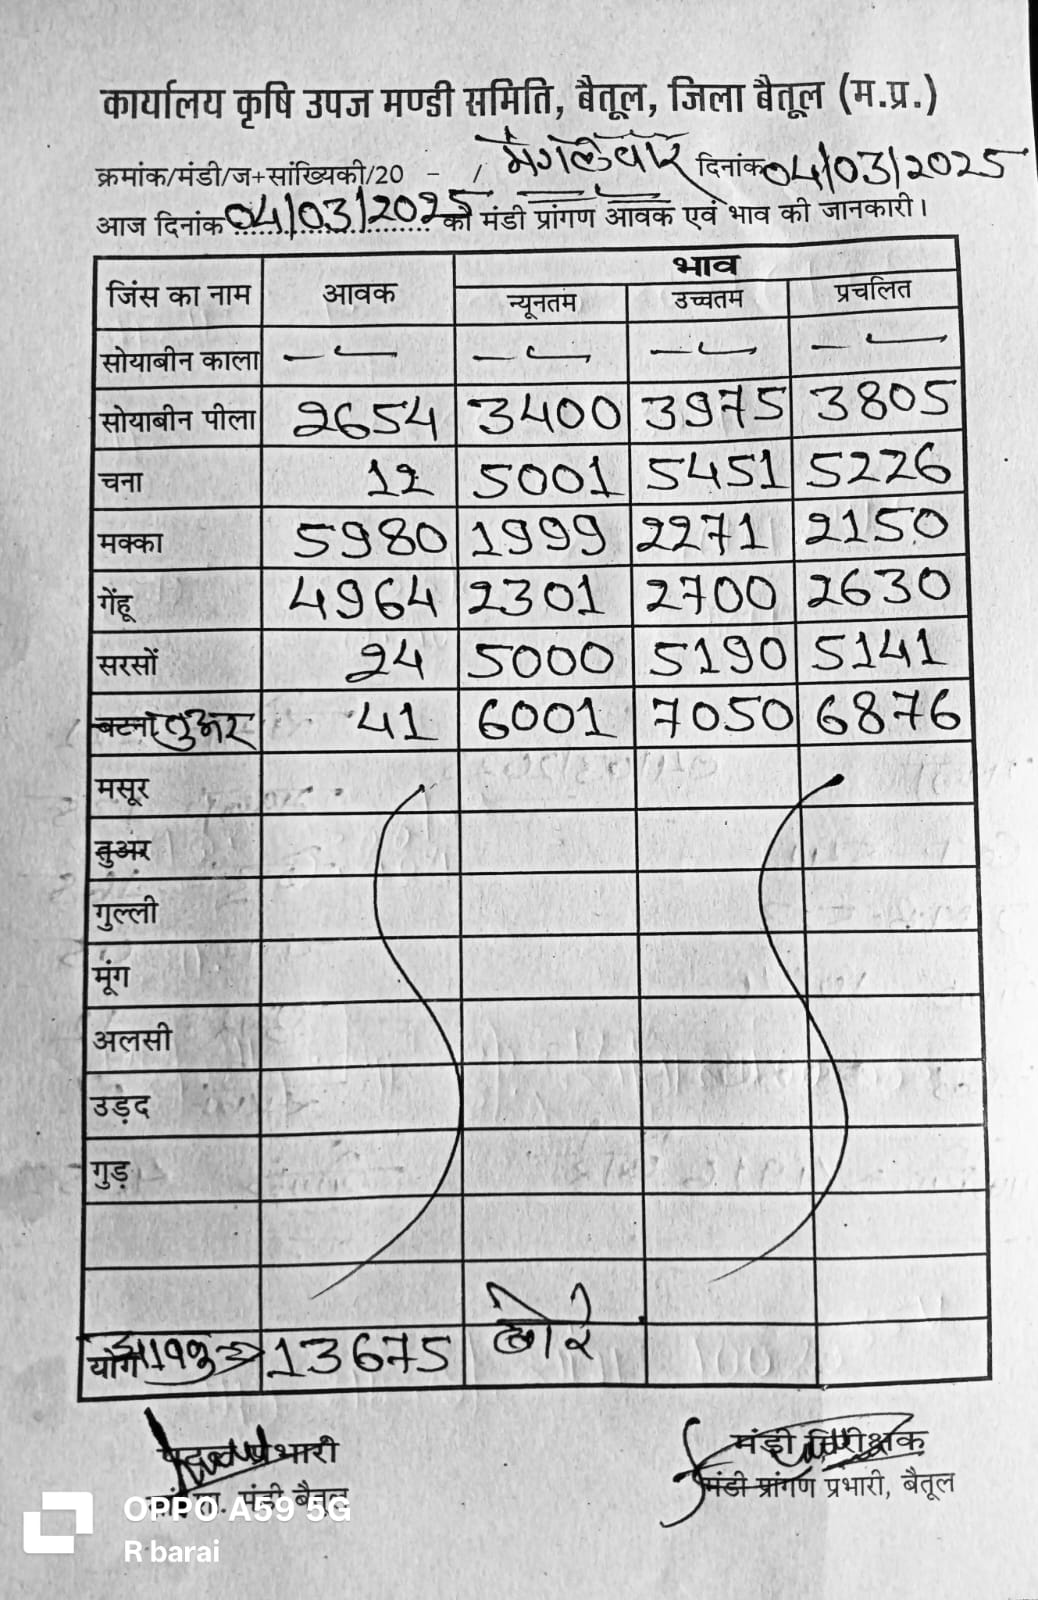 कार्यालय कृषि उपज मण्डी समिति, बैतूल, जिला बैतूल (म.प्र.)
क्रमांक/मंडी/ज+सांख्यिकी/20 - / मंगलवार दिनांक 04/03/2025
आज दिनांक 04/03/2025 को मंडी प्रांगण आवक एवं भाव की जानकारी।
जिंस का नाम आवक भाव
न्यूनतम उच्चतम प्रचलित
सोयाबीन काला — — — —
सोयाबीन पीला 2654 3400 3975 3805
चना 12 5001 5451 5226
मक्का 5980 1999 2271 2150
गेंहू 4964 2301 2700 2630
सरसों 24 5000 5190 5141
बटना तुअर 41 6001 7050 6876
मसूर
तुअर
गुल्ली
मूंग
अलसी
उड़द
गुड़
योग 13675 बोरे
प्रभारी मंडी निरीक्षक
मंडी बैतूल मंडी प्रांगण प्रभारी, बैतूल
OPPO A59 5G
R barai